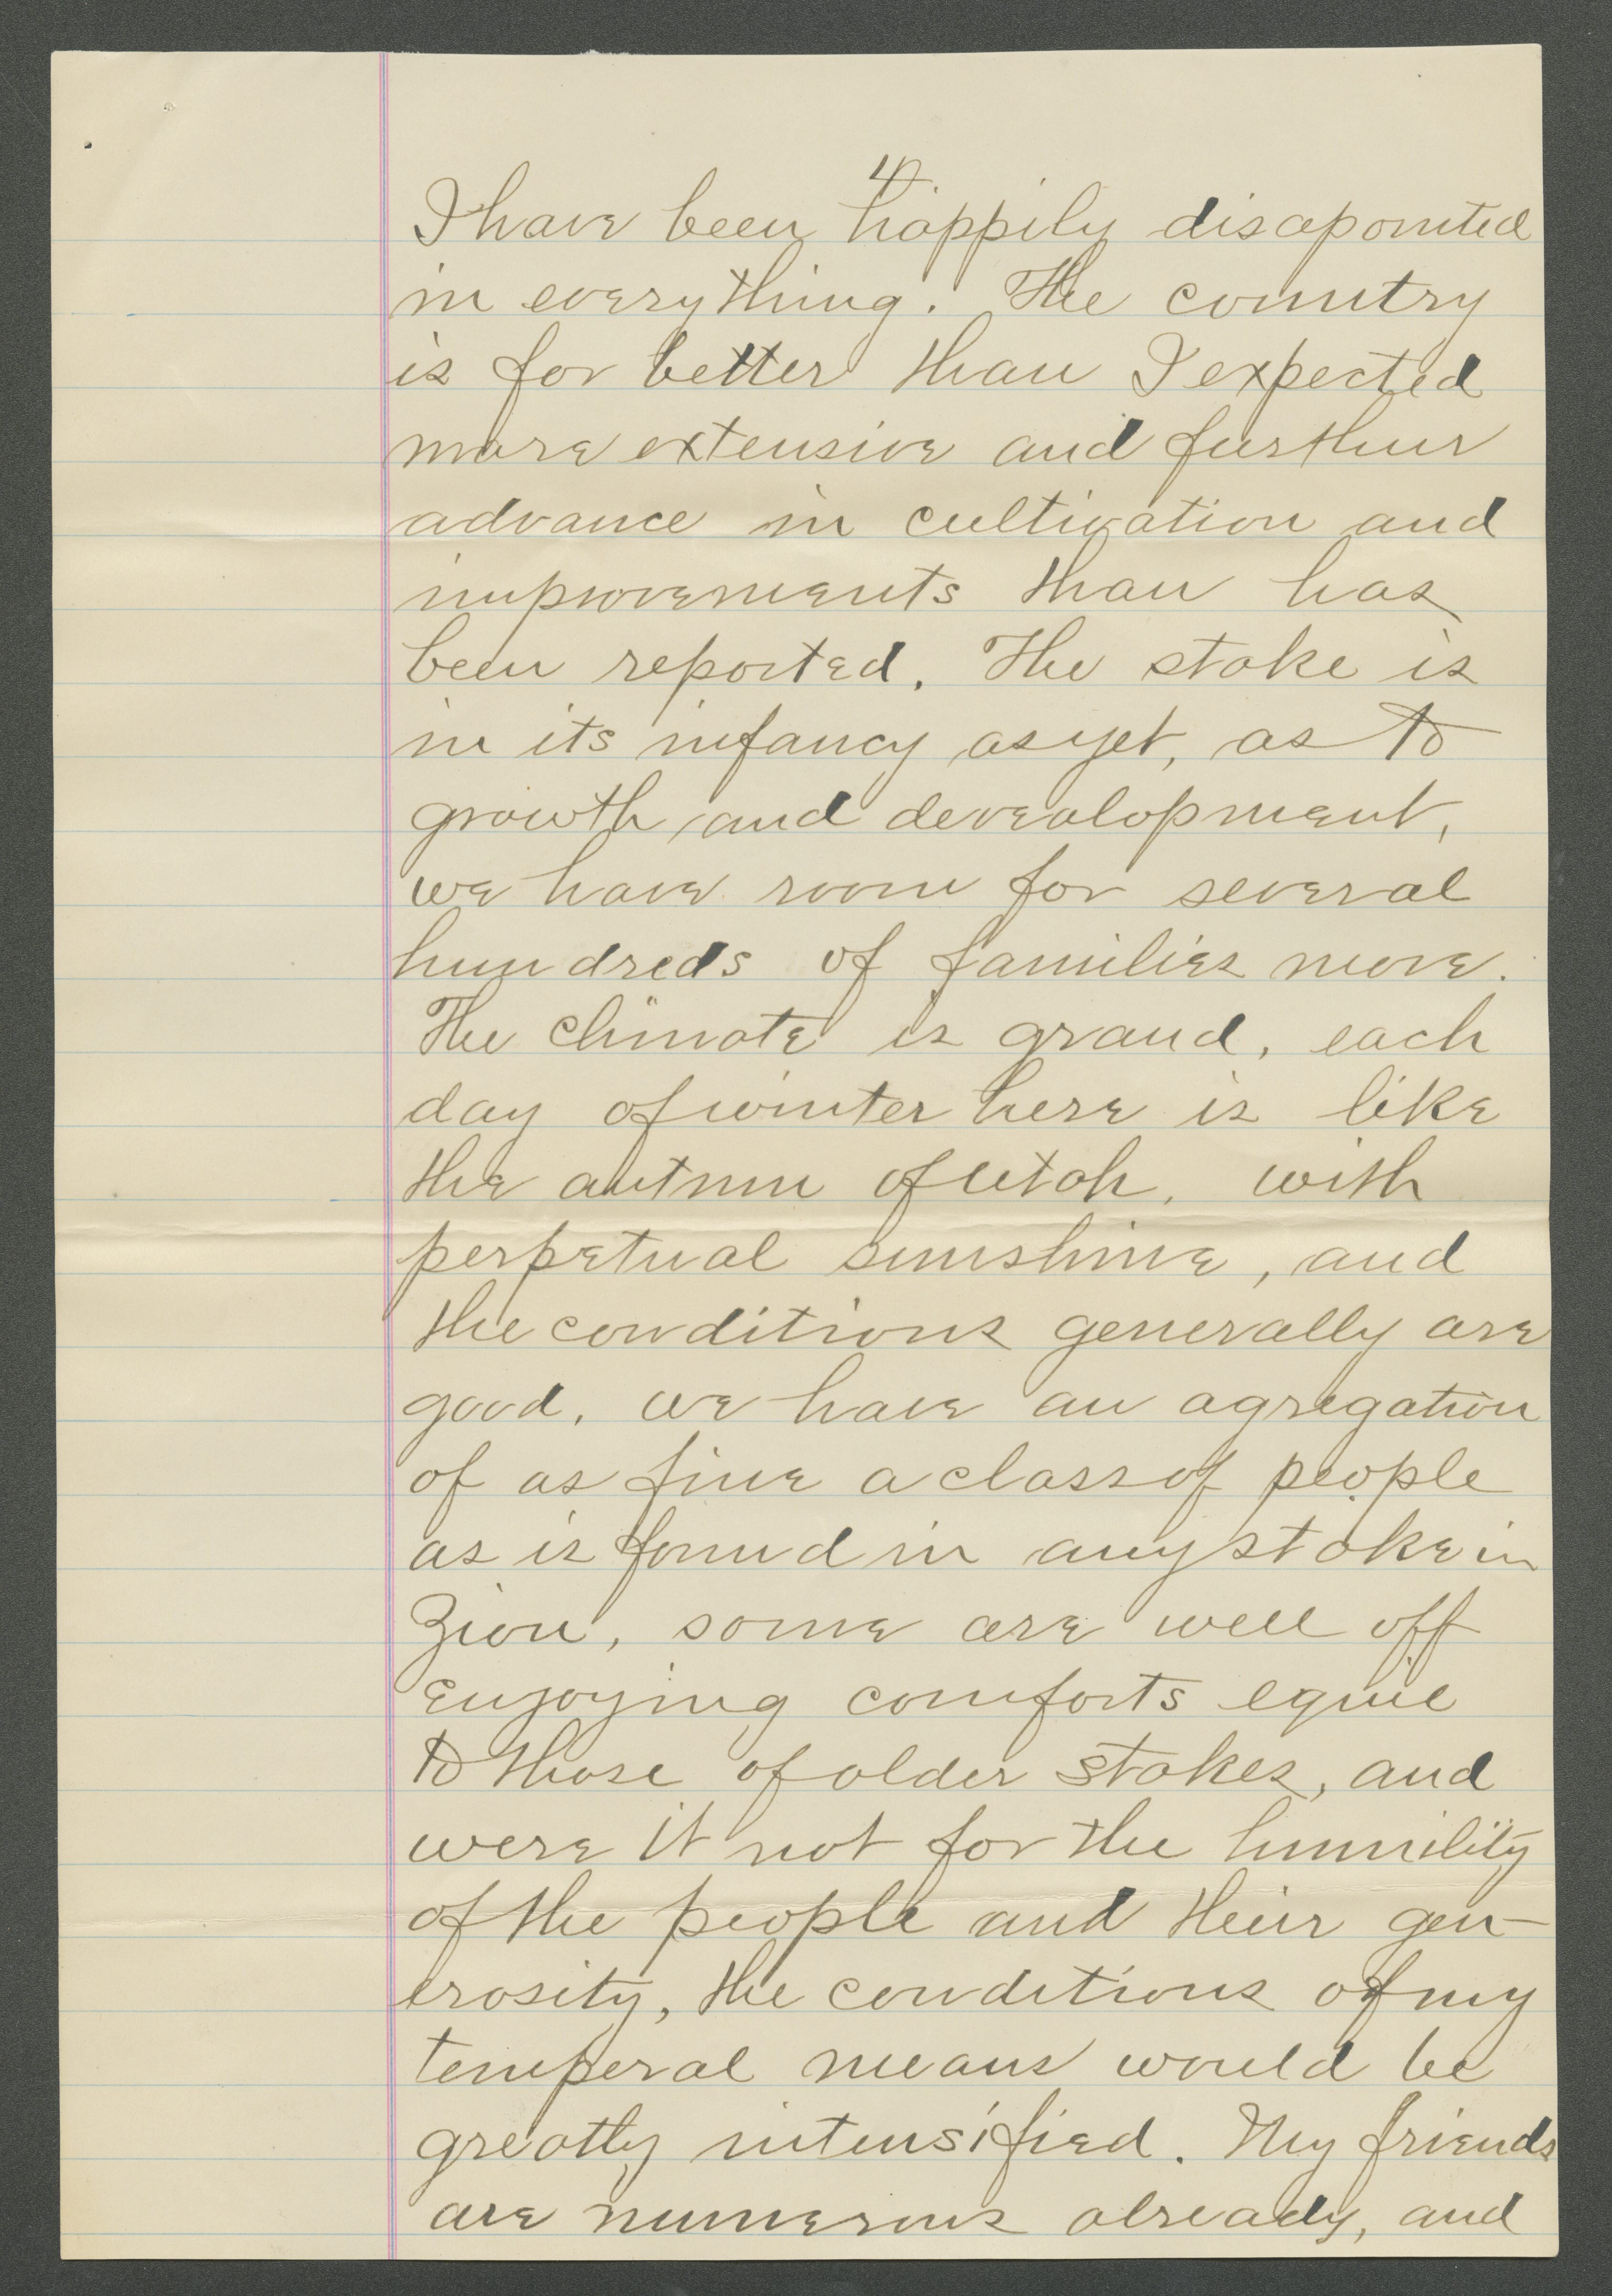 4
I have been happily disapointed
in everything. The country
is far better than I expected
more extensive and further
advance in cultivation and
improvements than has
been reported. The stake is
in its infancy as yet, as to
growth and develalopment,
we have room for several
hundreds of families more.
The climate is grand, each
day of winter here is like
the autmn of Utah, with
perpetual sunshine, and
the conditions generally are
good. we have an agregation
of as fine a class of people
as is found in any stake in
Zion, some are well off
enjoying comforts equil
to those of older stakes, and
were it not for the humility
of the people and their gen-
erosity, the conditions of my
temperal means would be
greatly intensified. My friends
are numerous already, and